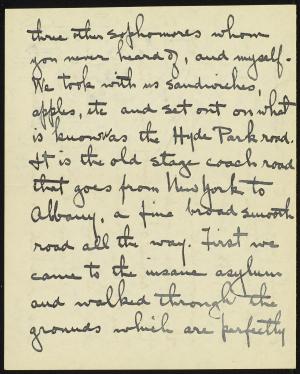 three other sophomores whom
you never heard of, and myself.
We took with us sandwiches,
apples, etc and set out on what
is known as the Hyde Park road.
It is the old stage coach road
that goes from New York to
Albany, a fine broad smooth
road all the way. First we
came to the insane asylum
and walked through the
grounds which are perfectly